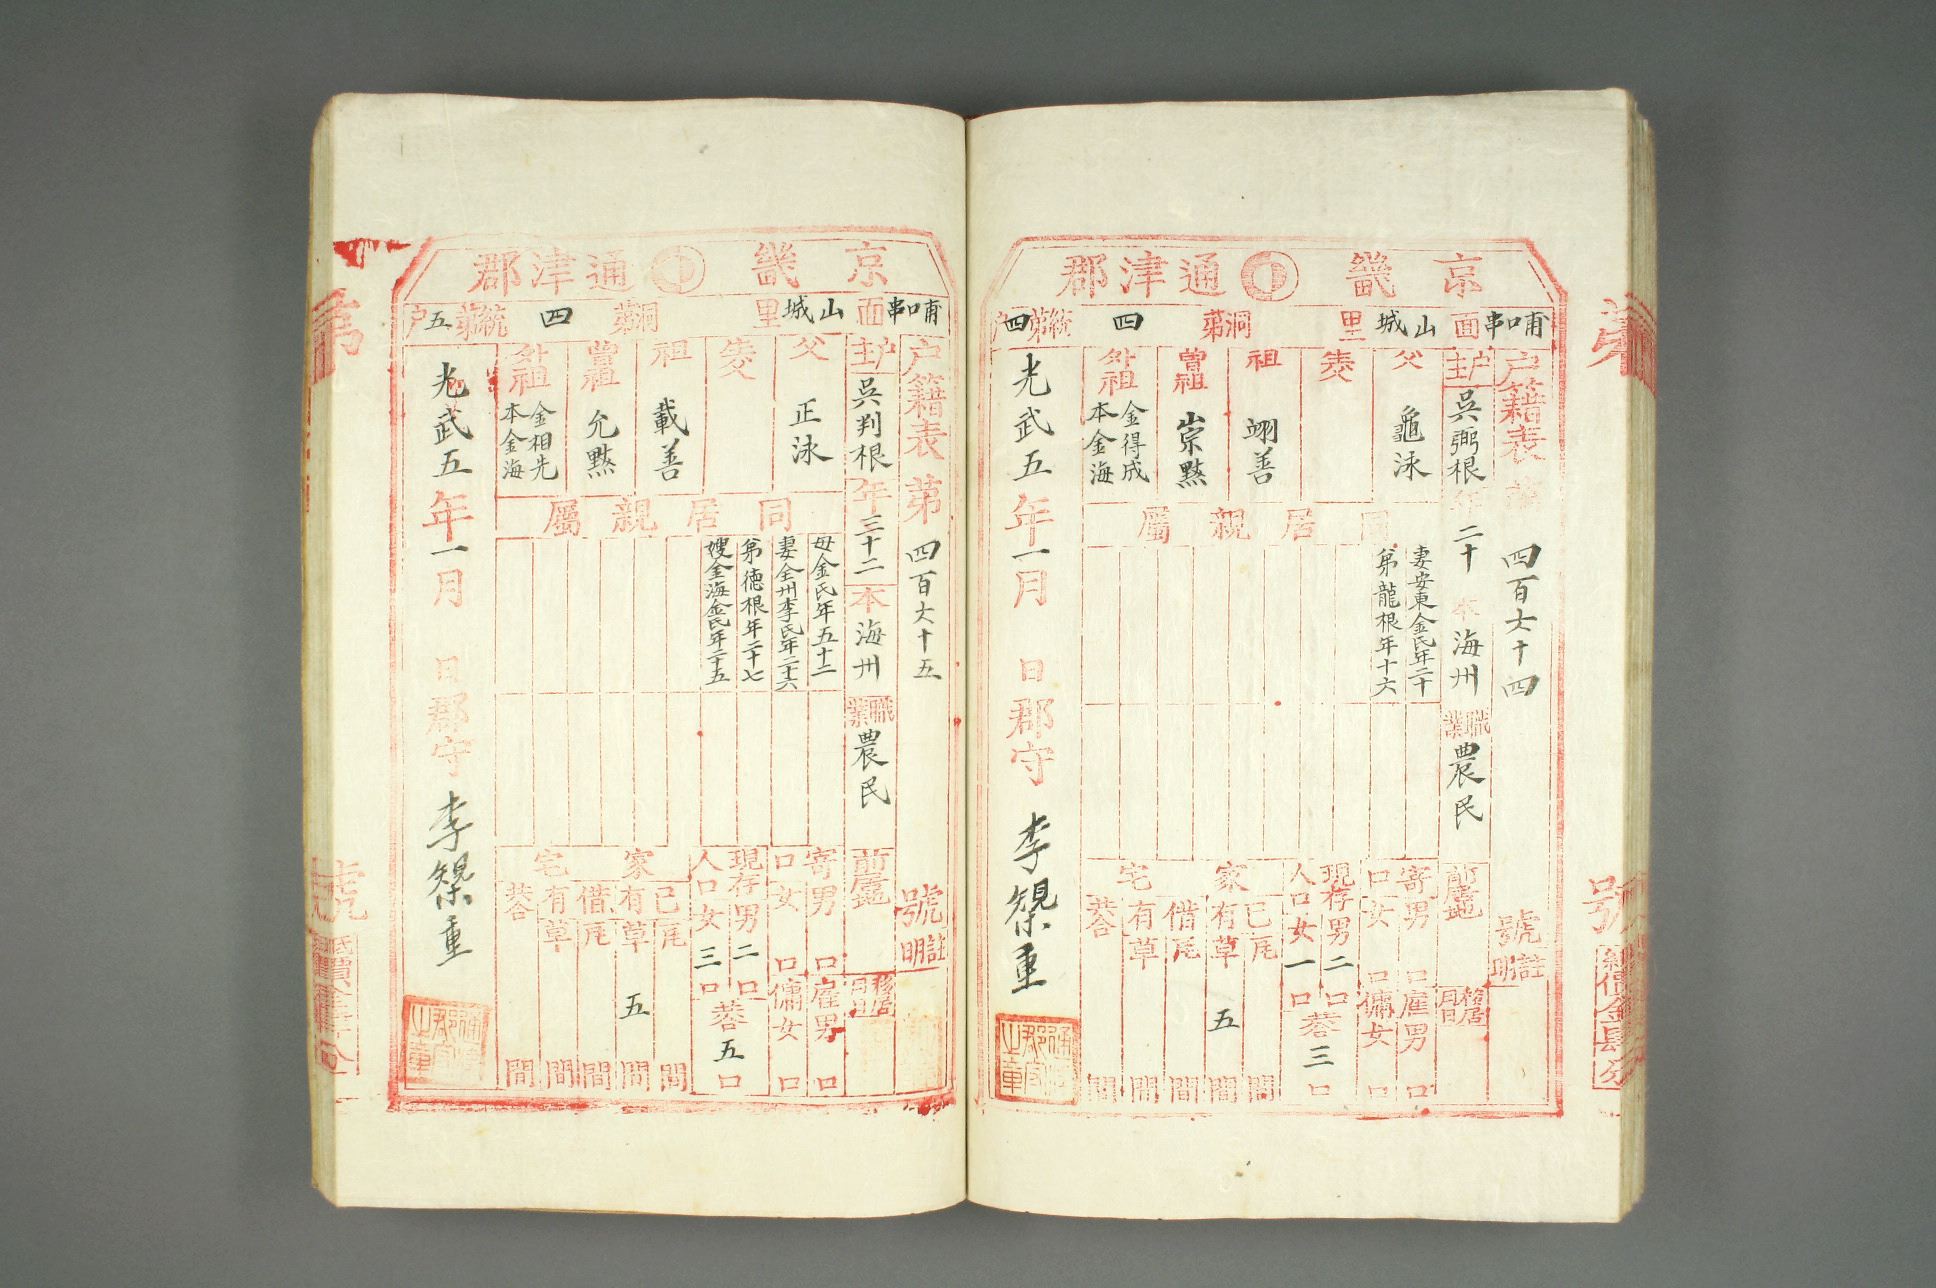 京畿通津郡
哺口串面山城里
洞第四統第四户
户籍表第四百六十四號
户主吳弼根年二十本海州職業農民
父龜泳
生父
祖翊善
曾祖崇默
外祖金得成本金海
同居親屬
妻安東金氏年二十
弟龍根年十六
前居地
移居月日
註明
寄口男口女口
雇男口
傭女口
現存人口男二口女一口
共三口
家宅
己有瓦間
草五間
借有瓦間
草間
共合間
光武五年一月日郡守李
重
京畿通津郡
哺口串面山城里
洞第四統第五户
户籍表第四百六十五號
户主吳判根年三十二本海州職業農民
父正泳
生父
祖載善
曾祖允默
外祖金相先本金海
同居親屬
母金氏年五十二
妻全州李氏年二十六
弟德根年二十七
嫂金海金氏年二十五
前居地
移居月日
註明
寄口男口女口
雇男口
傭女口
現存人口男二口女三口
共五口
家宅
己有瓦間
草五間
借有瓦間
草間
共合間
光武五年一月日郡守李
重